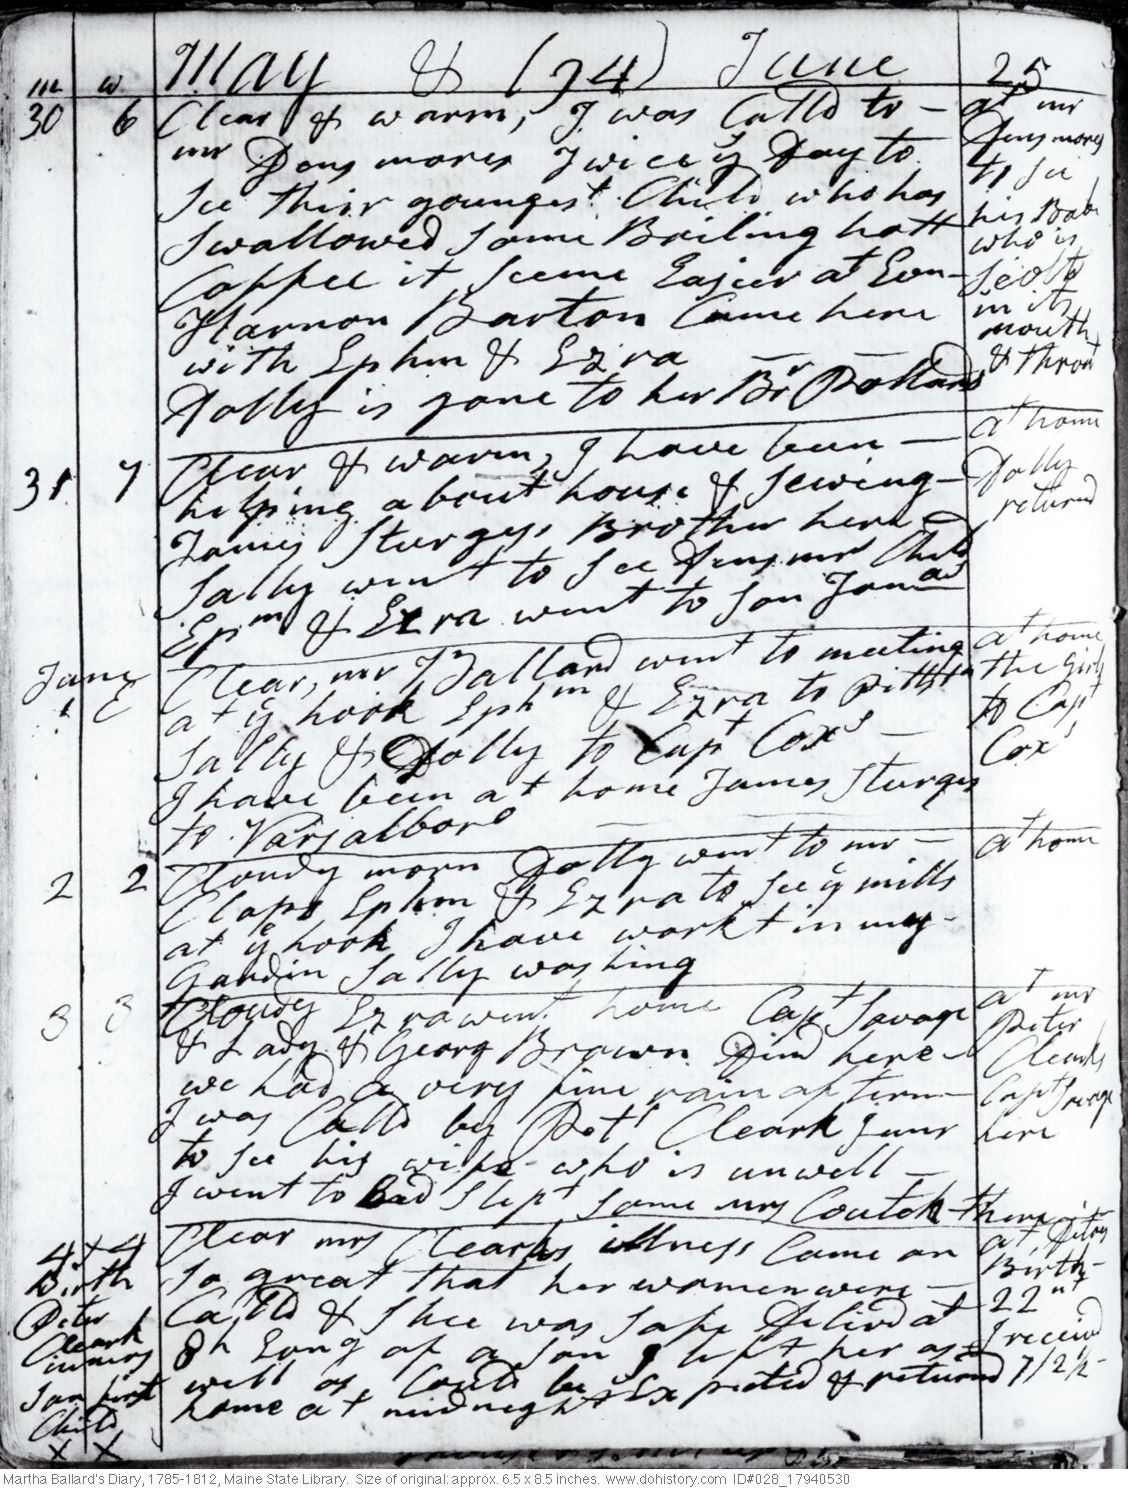 m w May & (94) June 25
30 6 Clear & warm, I was Calld to — at mr
mr Densmores Twice ye Day to Densmores
See thier youngest Child who has to See
Swallowed Some Boiling hott his Babe
Coffee it Seems Easier at Evn— who is
Harmon Barton Came here in its
with Ephm & Ezra mouth
Dolly is gone to her Br Pollards & throat
31 7 Clear & warm, I have been — at home
helping about house & Sewing— Dolly
James Sturgess Brother here returnd
Sally went to See Densmrs Child
Epm & Ezra went to Son Jonas
June Clear, mr Ballard went to meeting at home
1 E at ye hook Ephm & Ezra to Pittstn the Girls
Sally & Dolly to Capt Coxs — to Capt
I have been at home James Sturges Coxs
to Varsalboro
2 2 Cloudy morn Dolly went to mr — at home
Claps, Ephm & Ezra to See ye mills
at ye hook I have workt in my
Gardin Sally washing
3 3 Cloudy Ezra went home Capt Savage at mr
& Lady & Georg Brown Dind here— Peter
we had a very fine rain aftern— Clearks
I was Calld by Pet Cleark Junr Capt Savage
to See his wife who is unwell — here
I went to Bed Slept Some mrs Coutch there
4 4 Clear mrs Clearks illness Came on at Ditos
Birth So great that her women were — Birth
Peter Calld & Shee was Safe Delivd at 22nt
Cleark 8h Evng of a Son I left her as I receivd
iunrs well as Could be Expected & returnd 7/2½
Son first home at midnight
Child
X X
Martha Ballard's Diary, 1785-1812, Maine State Library. Size of original: approx. 6.5 x 8.5 inches. www.dohistory.com ID#028_17940530